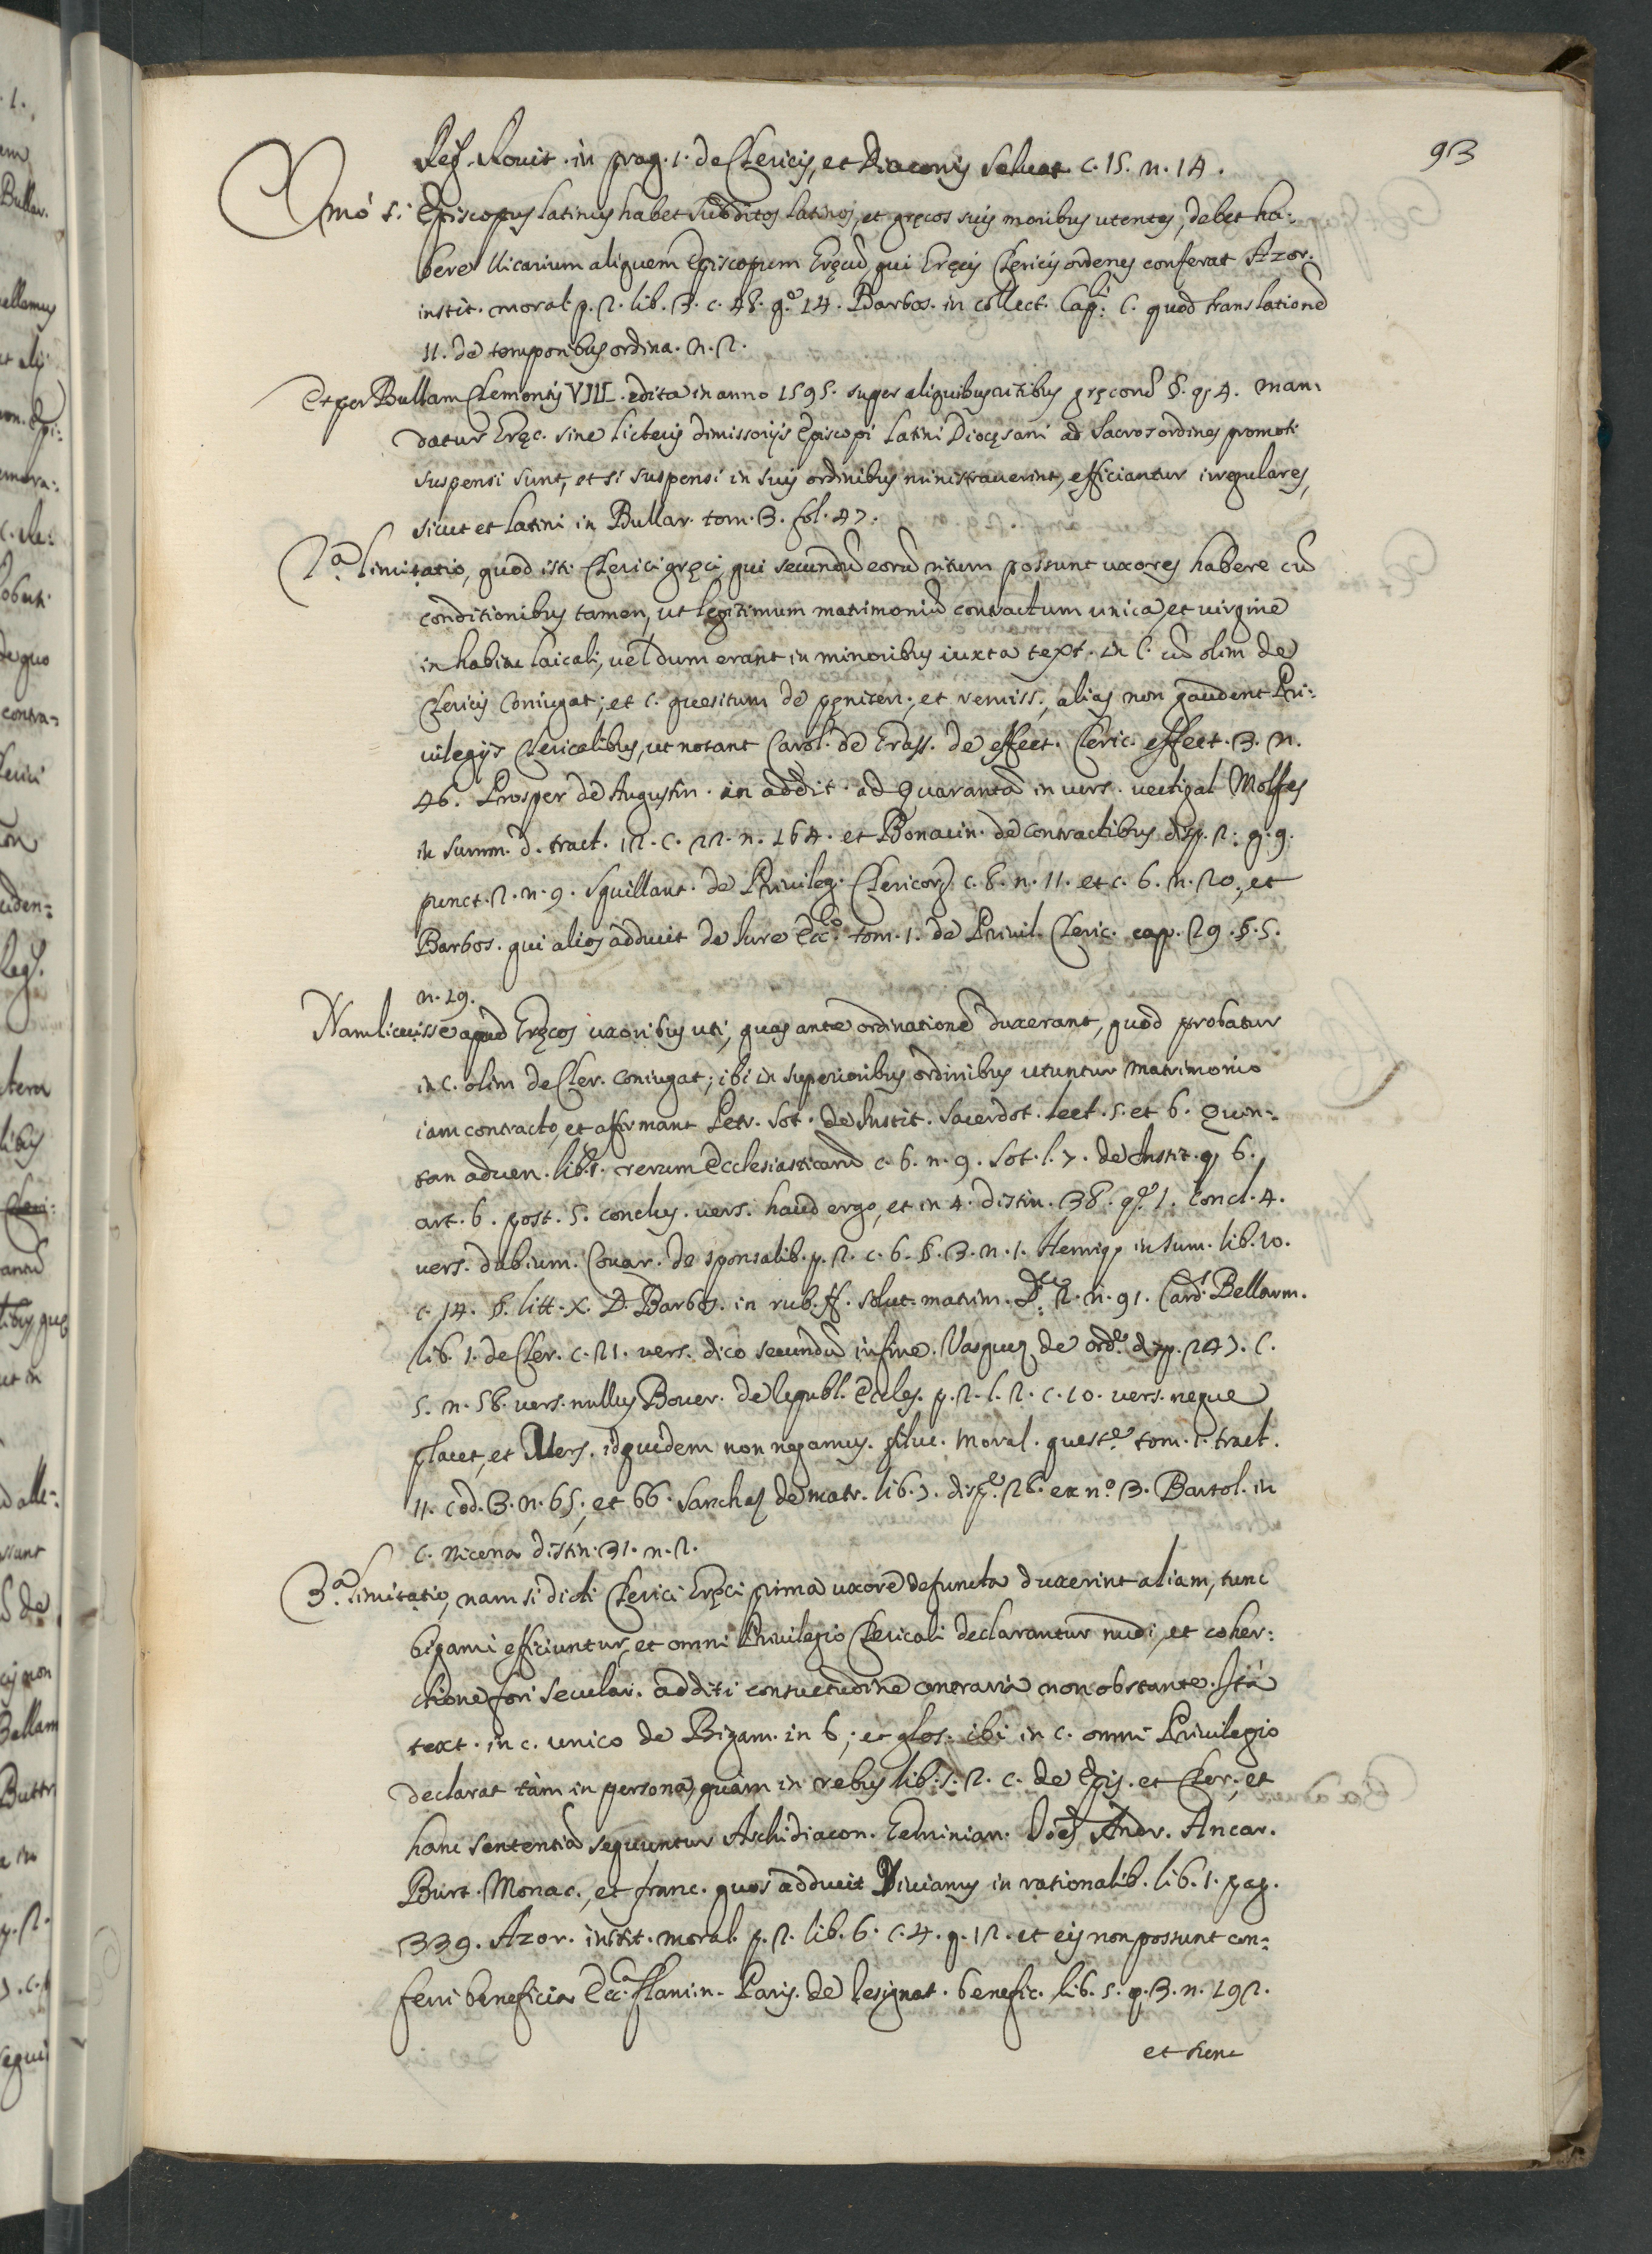 93
Reg. Rouit. in prag. 1. de Clericis, et Diaconis Seluat. c. 15. n. 14.
Imó si Episcopus latinus habet subditos latinos, et gręcos suis moribus utentes, debet ha:
bere Vicarium aliquem Episcopum Gręcū, qui Gręcis Clericis ordenes conferat Azor.
instit. moral. p. 2. lib. 3. c. 48. q.º 14. Barbos. in collect. Cap.i C. quod translationē
11. de temporibus ordina. n. 2.
Et per Bullam Clementis VIII. edita in anno 1595. super aliquibus ritibus gręcorū §. 4. man:
datur Gręc. sine licteris dimissorijs Episcopi Latini Diocęsani ad Sacros ordines promoti
suspensi sunt, et si suspensi in suis ordinibus ministrauerint, efficiantur irregulares,
sicut et latini in Bullar. tom. 3. fol. 47.
2.a limitatio, quod isti Clerici gręci, qui secundū eorū ritum possunt uxores habere cū
conditionibus tamen, ut legitimum matrimoniū contractum unica, et uirgine
in habitu laicali, uel dum erant in minoribus iuxta text. in C. cū olim de
Clericis Coniugat; et c. quesitum de pęniten. et remiss., alias non gaudent Pri:
uilegijs Clericalibus, ut notant Carol. de Grass. de effect. Cleric. effect. 3. n.
46. Prosper de Augustin. in addit. ad Quarantā in uers. uectigal Molfes
in summ. d. tract. 12. c. 22. n. 164. et Bonacin. de contractibus disp. 2. q. 9.
punct. 2. n. 9. Squillant. de Priuileg. Clericor. c. 8. n. 11. et c. 6. n. 20., et
Barbos. qui alios adducit de Iure Ecc.º tom. 1. de Priuil. Cleric. cap. 29. §. 5.
n. 29.
Nam licuisse apud Gręcos uxoribus uti, quas ante ordinationē duxerant, quod probatur
in C. olim de Cler. coniugat; ibi in superioribus ordinibus utuntur matrimonio
iam contracto, et affirmant Petr. Sot. de Instit. sacerdot. lect. 5. et 6. Quin:
tan aduen. lib. rerum Ecclesiasticarū c. 6. n. 9. Sot. l. 7. de Instit. q. 6.
art. 6. post. 5. conclus. uers. haud ergo, et in 4. distin. 38. q.º 1. concl. 4.
uers. dubium. Couar. de sponsalib. p. 2. c. 6. §. 3. n. 1. Henriq. in sum. lib. 10.
c. 14. §. litt. X. D. Barbos. in rub. ff. solut. matrim. 2. n. 91. Card. Bellarm.
lib. 1. de Cler. c. 21. uers. dico secundū in fine. Vasquez de ord.e disp. 247. C.
5. n. 58. uers. nullus Bouer. de Republ. Eccles. p. 2. l. 2. c. 10. uers. neque
placet, et Uers. id quidem non negamus. filiuc. moral. quest.e tom. 1. tract.
11. cod. 3. n. 65, et 66. Sanchez de matr. lib. 7. disp. 28. ex n.º 3. Bartol. in
C. nicena distin. 31. n. 2.
3.a limitatio, nam si dicti Clerici Gręci prima uxore defuncta duxerint aliam, tunc
bigami efficiuntur, et omni Priuilegio Clericali declarantur nudi, et coher:
ctione fori secular. additi consuetudine contraria non obstante. Ità
text. in c. unico de Bigam. in 6; et glos. ibi in c. omni Priuilegio
declarat tàm in persona, quàm in rebus lib. 5. 2. c. de Epis. et Cler. et
hanc sententiā sequuntur Archidiacon. Geminian. Ioēs Andr. Ancar.
Butt. Monac., et franc. quos adducit Viuianus in rationalib. lib. 1. pag.
339. Azor. instit. moral. p. 2. lib. 6. c. 4. q. 12. et eis non possunt con:
ferri beneficia Ecc.a flamin. Paris. de Resignat. benefic. lib. 5. q. 3. n. 192.
et hanc